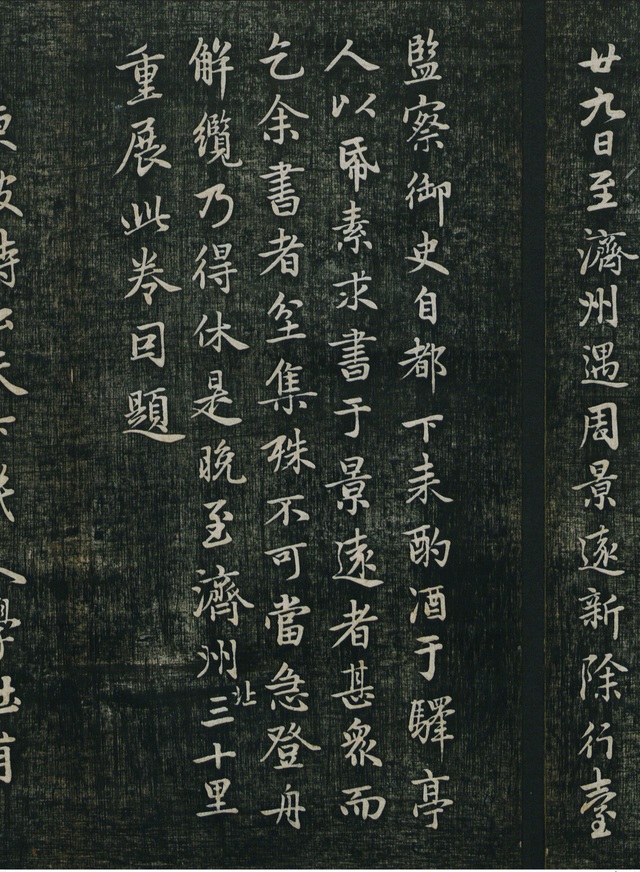 廿九日至濟州遇周景遠新除行臺
監察御史自都下来酌酒于驛亭
人以帋素求書于景遠者甚衆而
乞余書者坌集殊不可當急登舟
解纜乃得休是晚至濟州北三十里
重展此卷囙題